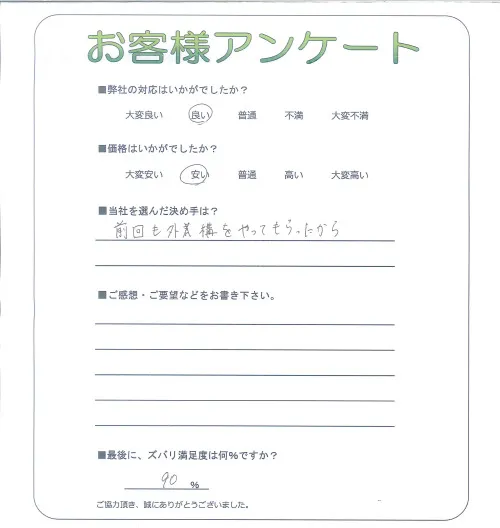 お客様アンケート
■弊社の対応はいかがでしたか？
大変良い 良い 普通 不満 大変不満
■価格はいかがでしたか？
大変安い 安い 普通 高い 大変高い
■当社を選んだ決め手は？
前回も外構をやってもらったから
■ご感想・ご要望などをお書き下さい。
■最後に、ズバリ満足度は何%ですか？
90 %
ご協力頂き、誠にありがとうございました。